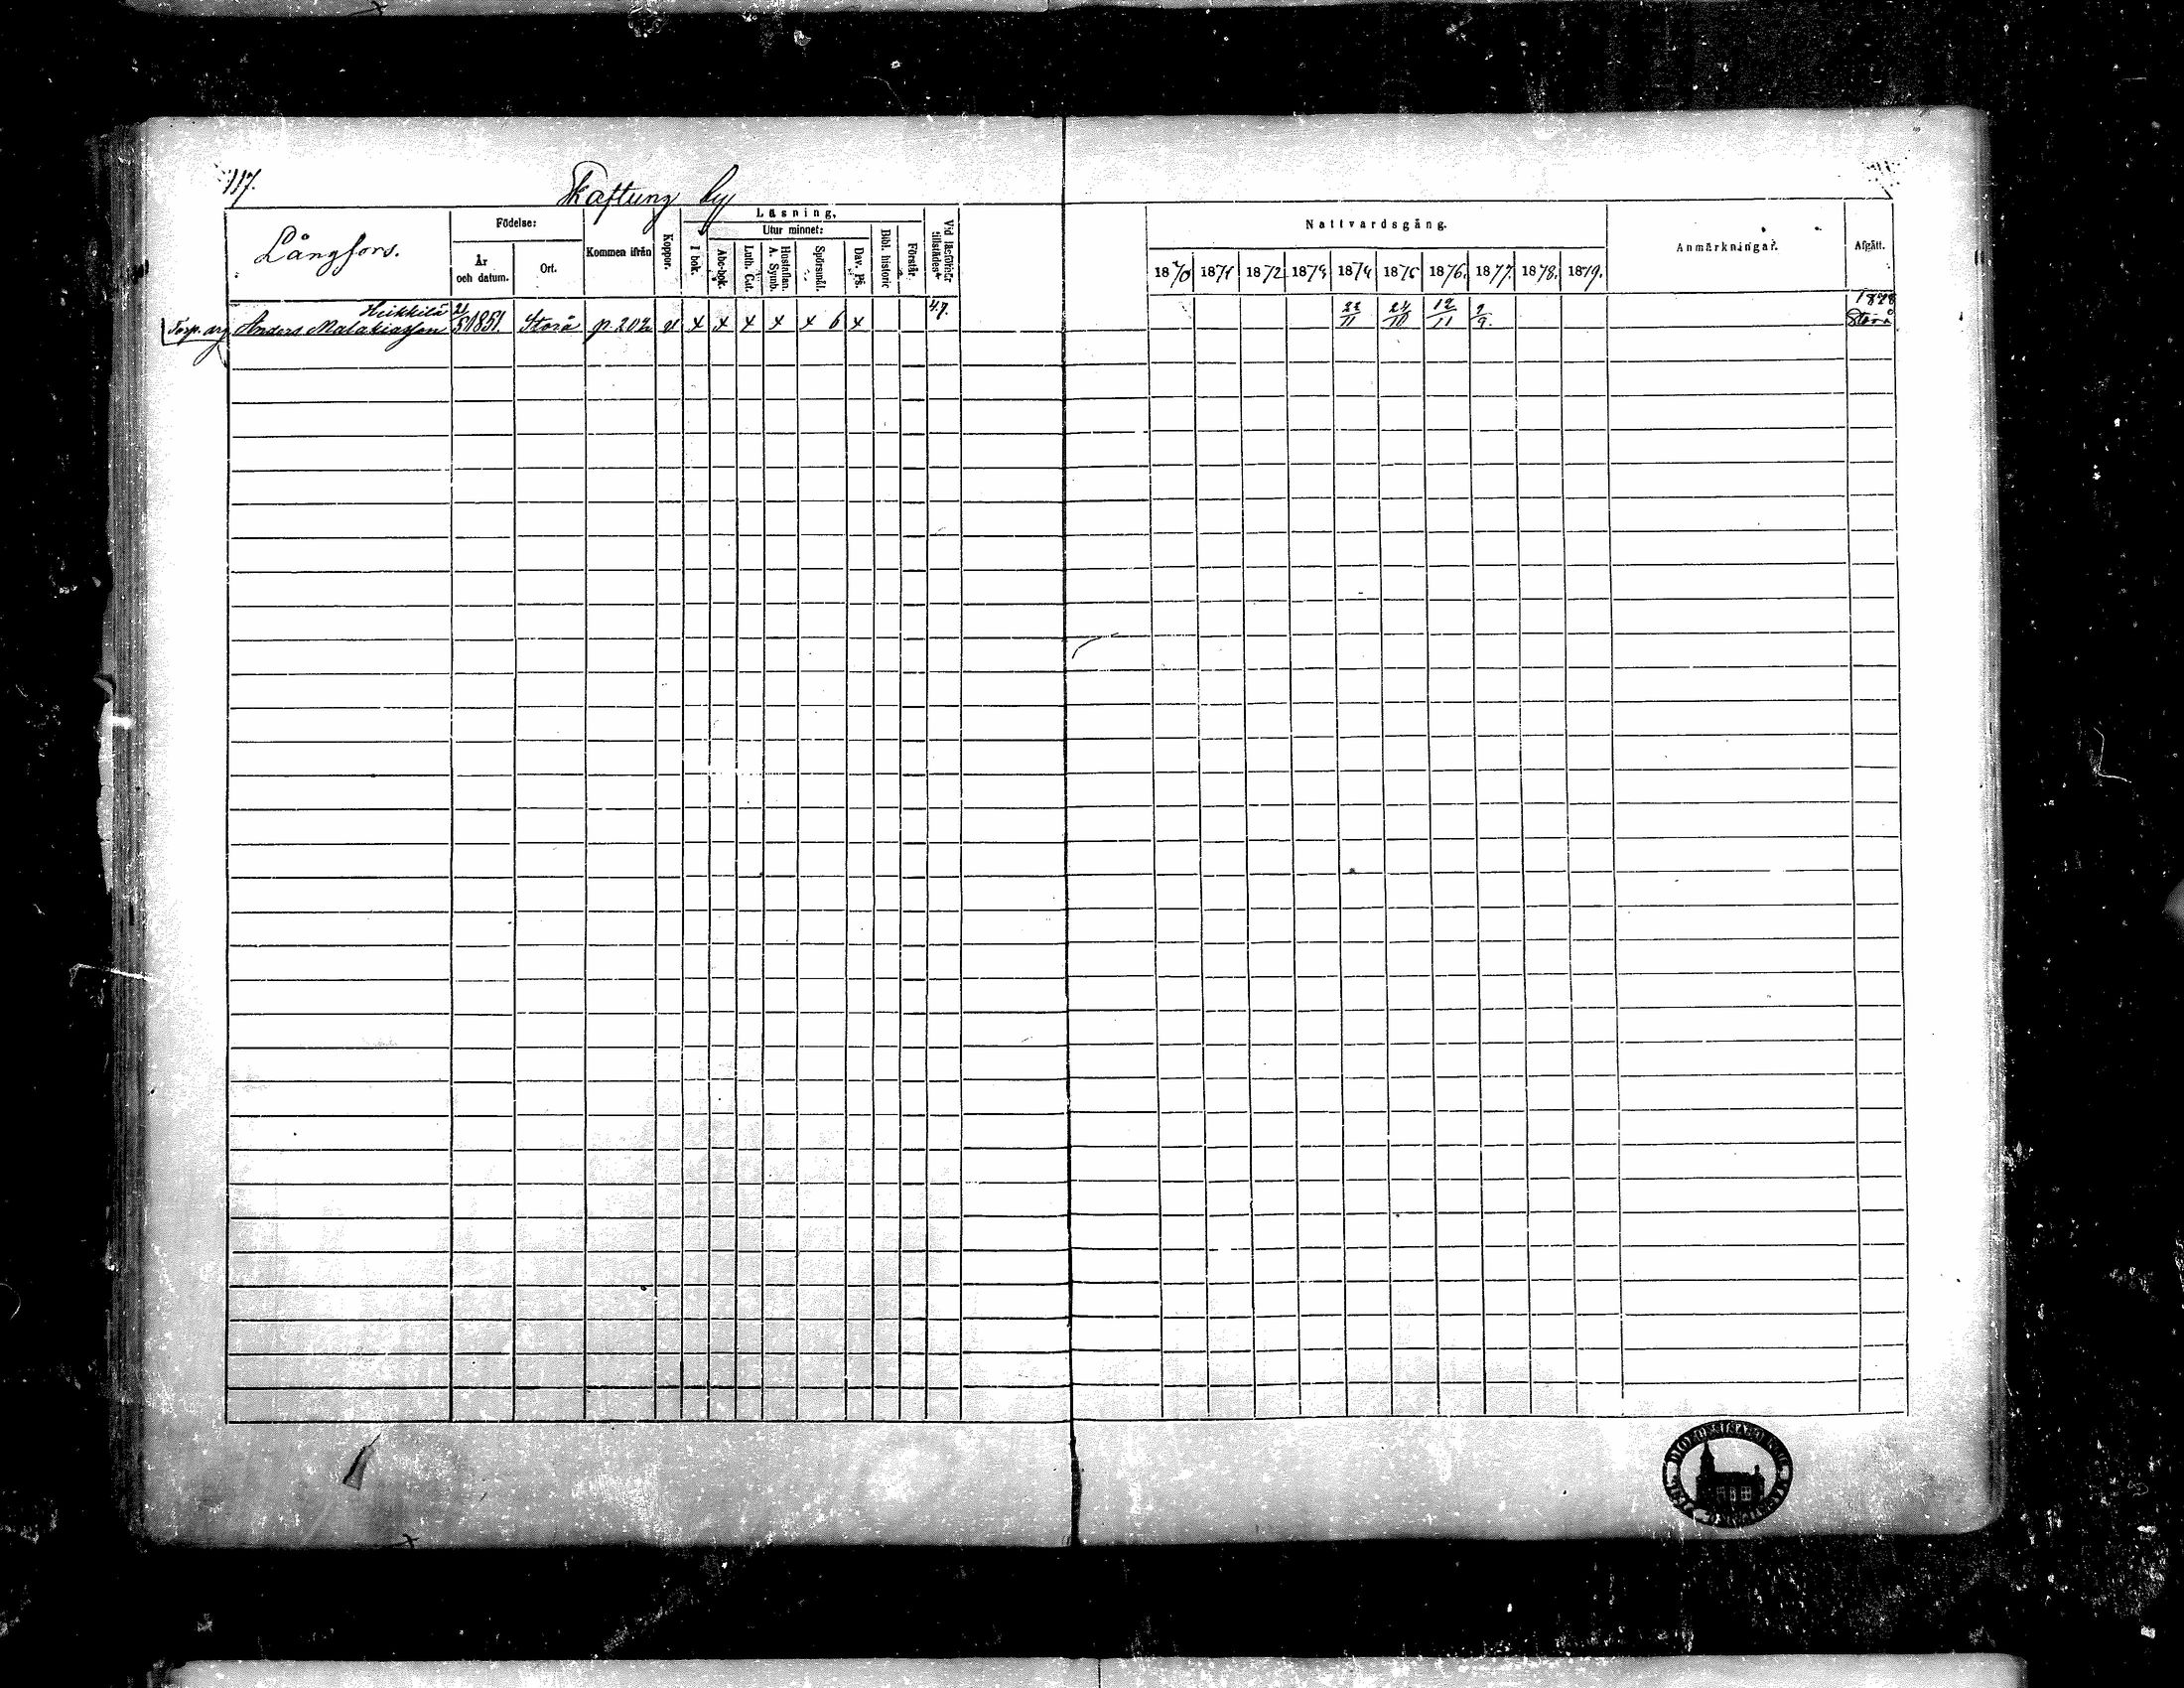 117.
Skaftung by
Långfors.
Födelse:
År
och datum.
Ort.
Kommen ifrån
Koppor.
Läsning.
I bok.
Utur minnet:
Abc-bok.
Luth. Cat.
Hustaflan.
A. Symb.
Spörsmål.
Dav. Ps.
Bibl. historie
Förstår.
Vid läsförhör
tillstädes
Nattvardsgång.
1870 1871 1872 1873 1874 1875 1876. 1877. 1878. 1879.
Anmärkningar.
Afgått.
Heikkilä
Torp. arg Anders Malakiasson 21/5 1851. Storå p. 202 x x x x x 6 x 47. 22/11 24/10 12/11 9/9. 1878
Storå